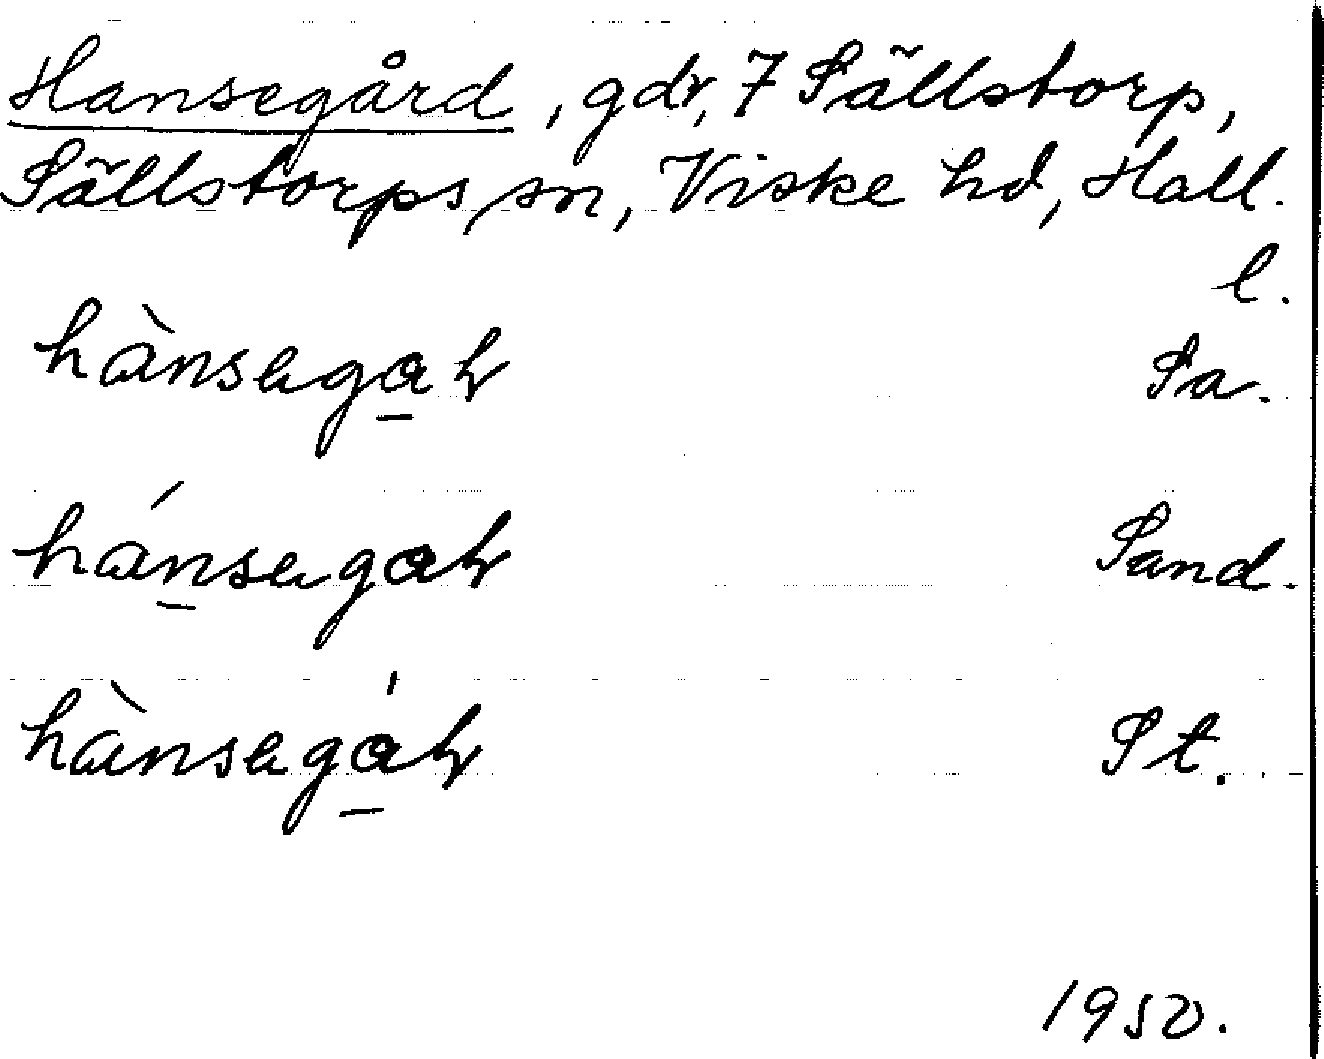 Hansegård, gdr, 7 Sällstorp,
Sällstorps sn, Viske hd, Hall.
l.
Sa.
Sand.
St.
1950.